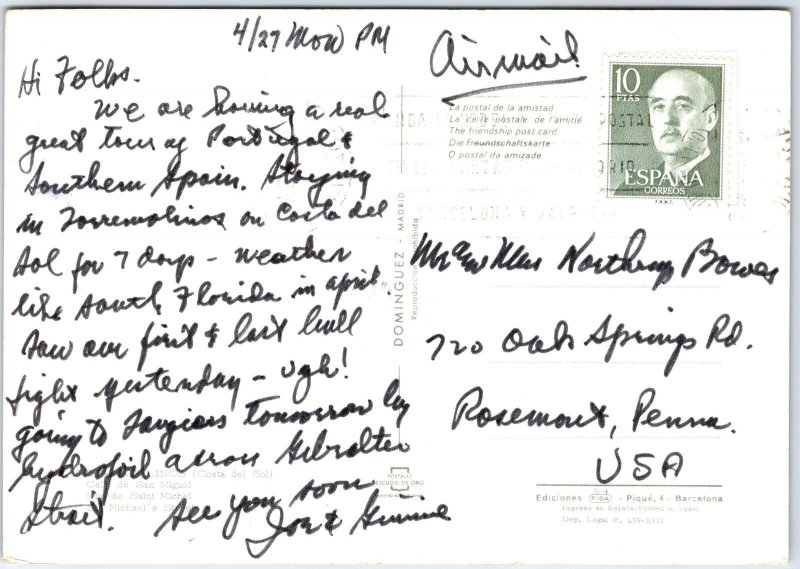 4/27 Mon PM
Hi Folks.
We are having a real
great tour of Portugal &
Southern Spain. Staying
in Torremolinos on Costa del
Sol for 7 days - weather
like South Florida in April.
Saw our first & last bull
fight yesterday - ugh!
going to Tangiers tomorrow by
hydrofoil across Gibralter
Strait. See you soon
Joe &
Airmail
La postal de la amistad
La carte postale de l'amitié
The friendship post card
Die Freundschaftskarte
O postal da amizade
10
PTAS
ESPAÑA
CORREOS
BARCELONA Y
DOMINGUEZ - MADRID
Reproducción prohibida
Mr and Mrs Northrup Bowes
720 Oak Springs Rd.
Rosemont, Penna.
USA
(Costa del Sol)
de San Miguel
de Saint Michel
Michael's
POSTALES
ESCUDO DE ORO
Ediciones FISA - Piqué, 4 - Barcelona
Impreso en España-Printed in Spain
Dep. Legal B.